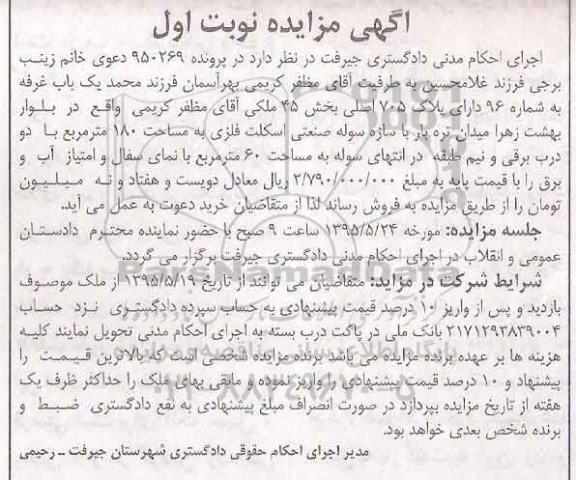 آگهی مزایده نوبت اول
اجرای احکام مدنی دادگستری جیرفت در نظر دارد در پرونده ۹۵۰۲۶۹ دعوی خانم زینب
برجی فرزند غلامحسین به طرفیت آقای مظفر کریمی بهرآسمان فرزند محمد یک باب غرفه
به شماره ۹۶ دارای پلاک ۷۰۵ اصلی بخش ۴۵ ملکی آقای مظفر کریمی واقع در بلوار
بهشت زهرا میدان تره بار با سازه سوله صنعتی اسکلت فلزی به مساحت ۱۸۰ مترمربع با دو
درب برقی و نیم طبقه در انتهای سوله به مساحت ۶۰ مترمربع با نمای سفال و امتیاز آب و
برق را با قیمت پایه به مبلغ ۲/۷۹۰/۰۰۰/۰۰۰ ریال معادل دویست و هفتاد و نه میلیون
تومان را از طریق مزایده به فروش رساند لذا از متقاضیان خرید دعوت به عمل می آید.
جلسه مزایده: مورخه ۱۳۹۵/۵/۲۴ ساعت ۹ صبح با حضور نماینده محترم دادستان
عمومی و انقلاب در اجرای احکام مدنی دادگستری جیرفت برگزار می گردد.
شرایط شرکت در مزاید: متقاضیان می توانند از تاریخ ۱۳۹۵/۵/۱۹ از ملک موصوف
بازدید و پس از واریز ۱۰ درصد قیمت پیشنهادی به حساب سپرده دادگستری نزد حساب
۲۱۷۱۲۹۳۸۳۹۰۰۴ بانک ملی در پاکت درب بسته به اجرای احکام مدنی تحویل نمایند کلیه
هزینه ها بر عهده برنده مزایده می باشد برنده مزایده شخصی است که بالاترین قیمت را
پیشنهاد و ۱۰ درصد قیمت پیشنهادی را واریز نموده و مابقی بهای ملک را حداکثر ظرف یک
هفته از تاریخ مزایده بپردازد در صورت انصراف مبلغ پیشنهادی به نفع دادگستری ضبط و
برنده شخص بعدی خواهد بود.
مدیر اجرای احکام حقوقی دادگستری شهرستان جیرفت ـ رحیمی
ParsNamadData